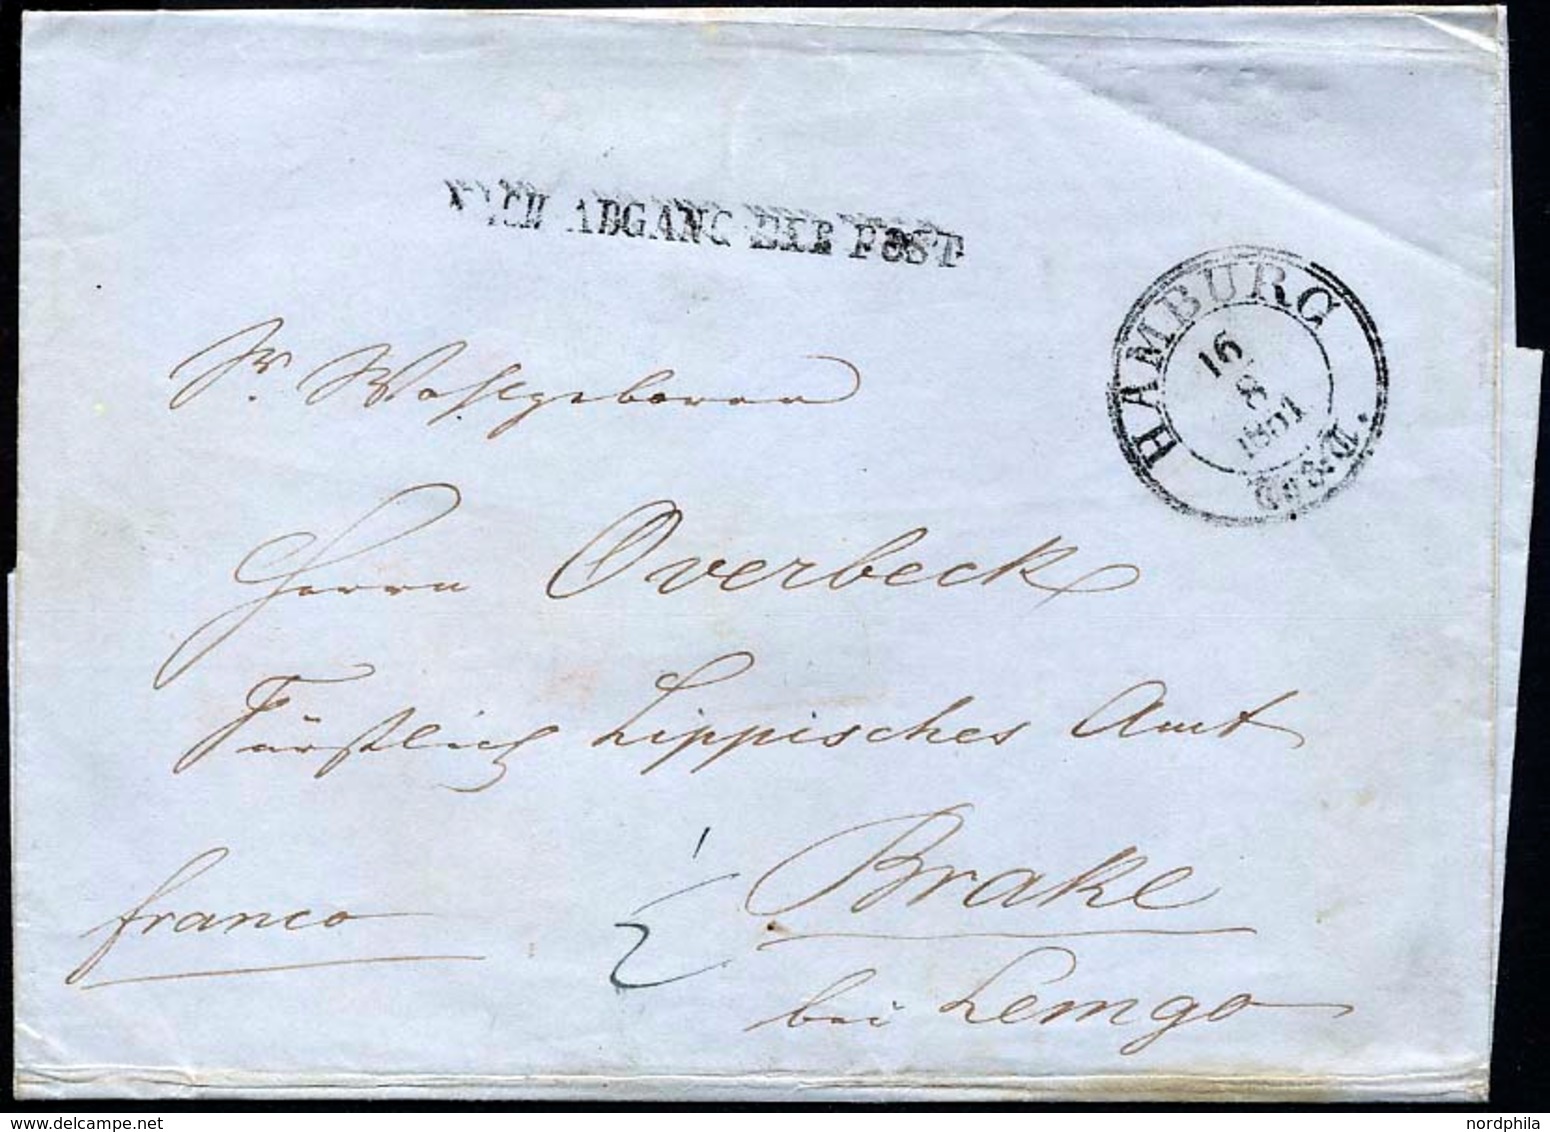 NACH ABGANG DER POST
HAMBURG
16
8
1851
Sr. Wohlgeboren
Herrn Overbeck
Fürstlich Lippisches Amt
Brake
franco
bei Lemgo
delcampe.net
nordphila